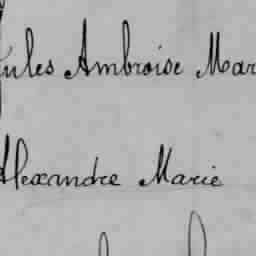 Jules Ambroise Mar
Alexandre Marie